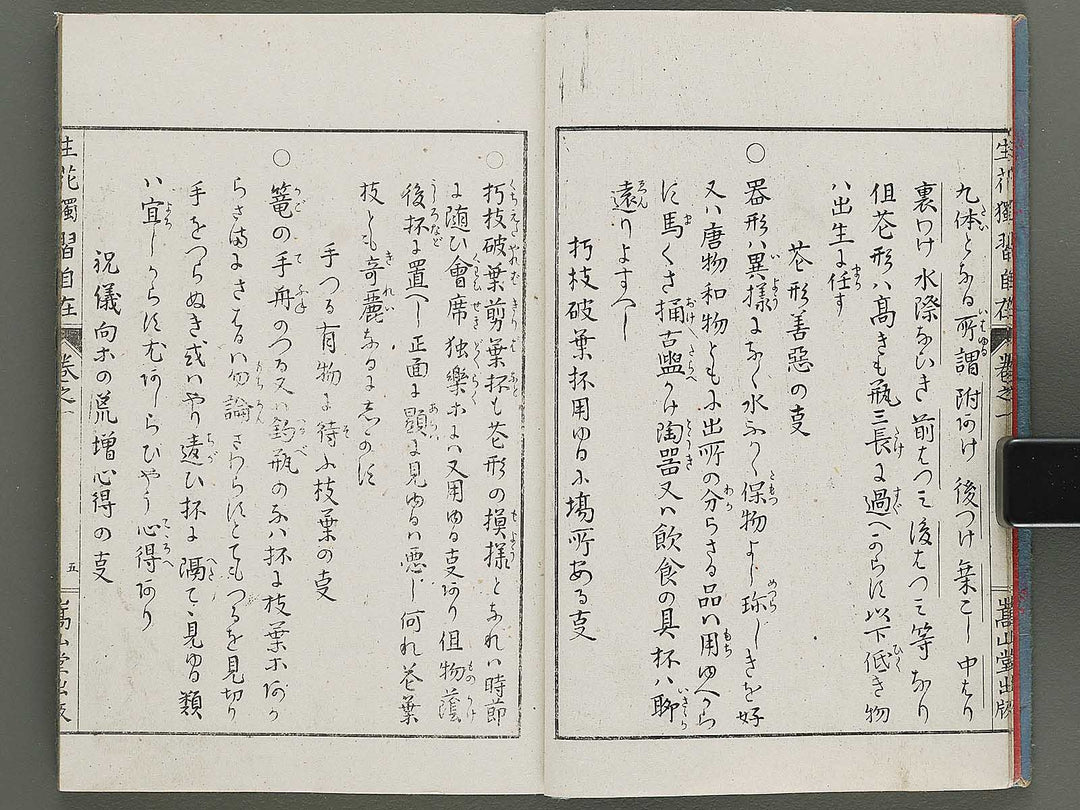 生花獨習自在
卷之一
嵩山堂出版
九体となる所謂附わけ 後つけ 葉こし 中はり
裏わけ 水際ないき 前はつミ 後はつミ等なり
但花形ハ高きも瓶三長に過へからす以下低き物
ハ出生に任す
花形善惡の事
○器形ハ異樣になく水ふかく保物よし珎しきを好
又ハ唐物和物ともに出所の分らさる品ハ用ゆへから
す馬くさ桶古盥かけ陶器又ハ飲食の具抔ハ聊
遠りよすへし
朽枝破葉抔用ゆるに塲所ある事
○朽枝破葉剪葉抔も花形の摸樣となれハ時節
に随ひ會席独樂ホにハ又用ゆる事あり但物蔭
後抔に置へし正面に顕に見ゆるハ悪し何れ花葉
枝とも竒麗なるに志くのす
手つる有物に待ふ枝葉の事
○篭の手舟のつる又ハ釣瓶のるハ抔に枝葉ホあか
らさ満にさはるハ勿論さわらすとてもつるを見切り
手をつらぬき或ハやり遣ひ抔に隔て見ゆる類
ハ宜しからすあしらひやう心得あり
祝儀向ホの流増心得の事
生花獨習自在
卷之一
五
嵩山堂出版